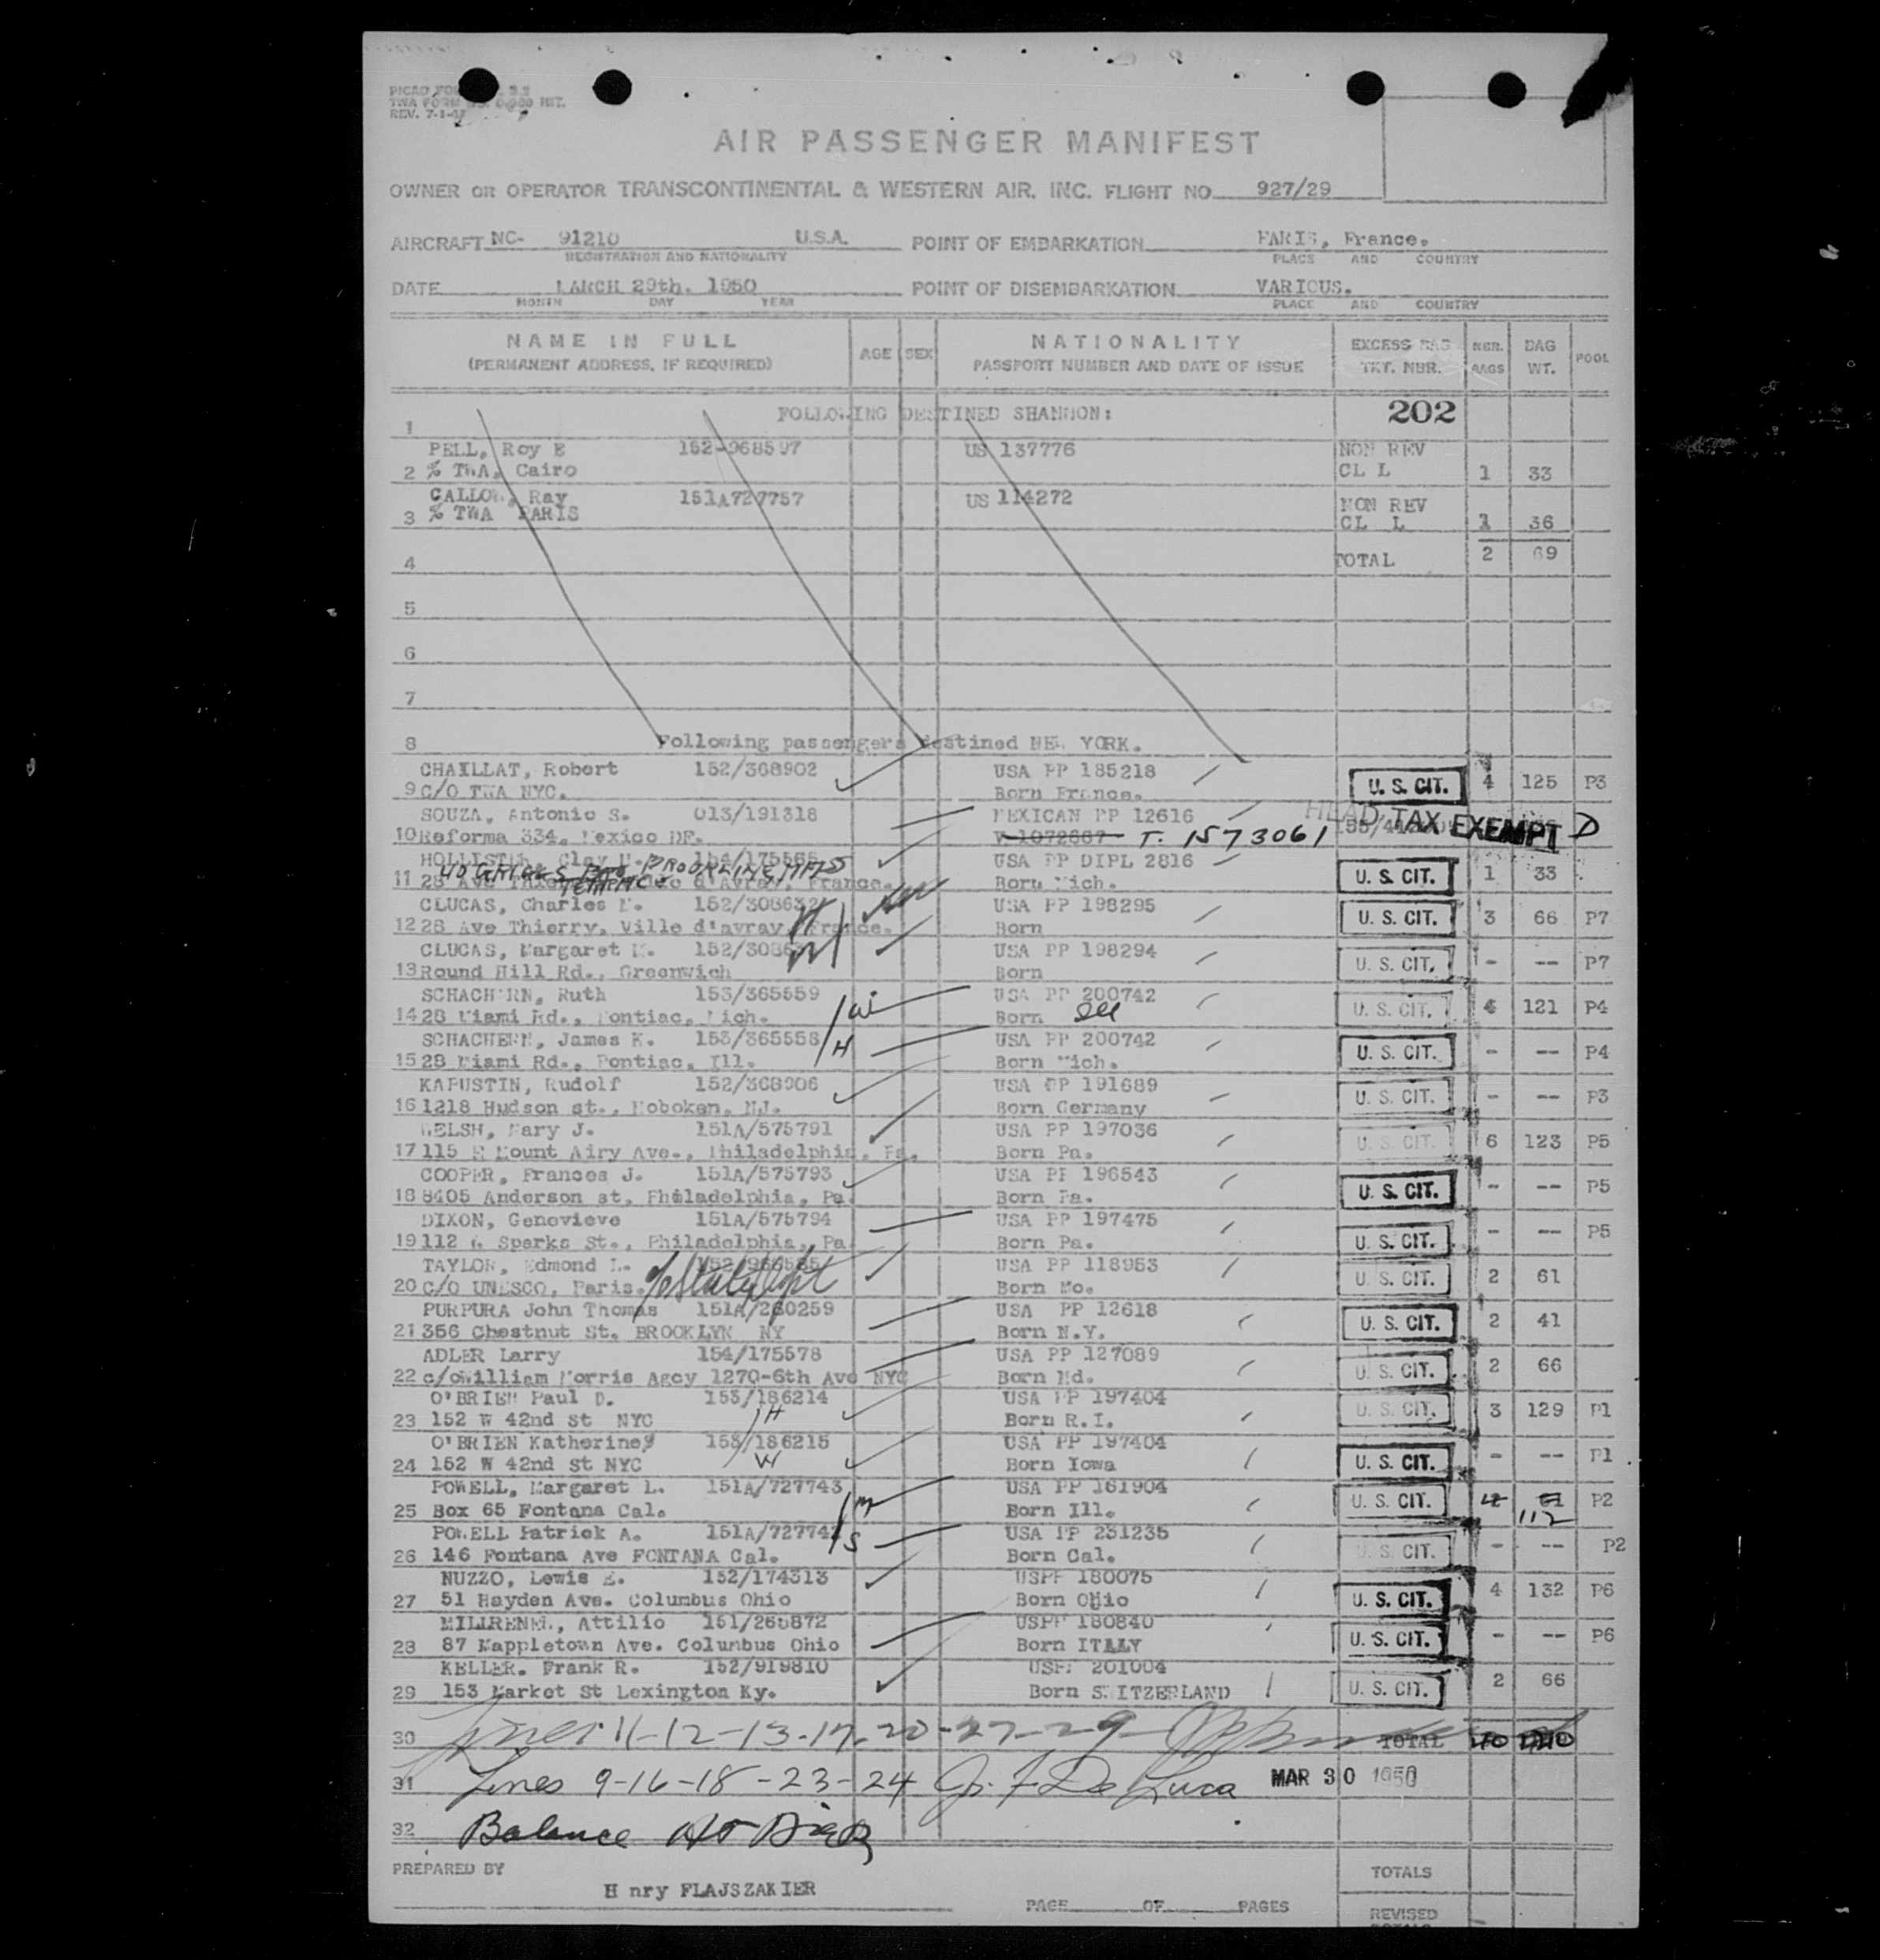 REV. 7-1-47
AIR PASSENGER MANIFEST
OWNER OR OPERATOR TRANSCONTINENTAL & WESTERN AIR, INC. FLIGHT NO. 927/29
AIRCRAFT NC- 91210 U.S.A. POINT OF EMBARKATION PARIS, France.
REGISTRATION AND NATIONALITY PLACE AND COUNTRY
DATE MARCH 29th. 1950 POINT OF DISEMBARKATION VARIOUS.
MONTH DAY YEAR PLACE AND COUNTRY
NAME IN FULL AGE SEX NATIONALITY EXCESS BAG NBR. BAG POOL
(PERMANENT ADDRESS, IF REQUIRED) PASSPORT NUMBER AND DATE OF ISSUE TKT. NBR. BAGS WT.
1 FOLLOWING DESTINED SHANNON: 202
PELL, Roy E 152-968597 US 137776 NON REV
2 % TWA, Cairo CL L 1 33
CALLOW, Ray 151A727757 US 114272 NON REV
3 % TWA PARIS CL L 1 36
4 TOTAL 2 69
5
6
7
8 Following passengers destined NEW YORK.
CHAILLAT, Robert 152/368902 USA PP 185218 U. S. CIT. 4 125 P3
9 C/O TWA NYC. Born France.
SOUZA, Antonio S. 013/191318 MEXICAN PP 12616
10 Reforma 334, Mexico DF. V-1072667 T. 1573061 HEAD TAX EXEMPT D
HOLLISTER, Clay 154/175565 USA PP DIPL 2816
BROOKLINE MASS
11 28 Ave d'Avray, France. Born Mich. U. S. CIT. 1 33
CLUCAS, Charles 152/308632 H USA PP 198295 U. S. CIT. 3 66 P7
12 28 Ave Thierry, Ville d'avray, France. Born
CLUCAS, Margaret M. 152/3086 W USA PP 198294 U. S. CIT. - -- P7
13 Round Hill Rd., Greenwich Born
SCHACHERN, Ruth 153/365559 Wi USA PP 200742 U. S. CIT. 4 121 P4
14 28 Miami Rd., Pontiac, Mich. Born Ill
SCHACHERN, James K. 153/365558 H USA PP 200742 U. S. CIT. - -- P4
15 28 Miami Rd., Pontiac, Ill. Born Mich.
KAPUSTIN, Rudolf 152/368906 USA PP 191689 U. S. CIT. - -- P3
16 1218 Hudson st., Hoboken, NJ. Born Germany
WELSH, Mary J. 151A/575791 USA PP 197036 U. S. CIT. 6 123 P5
17 115 E Mount Airy Ave., Philadelphia, Pa. Born Pa.
COOPER, Frances J. 151A/575793 USA PP 196543 U. S. CIT. - -- P5
18 8405 Anderson st, Philadelphia, Pa. Born Pa.
DIXON, Genevieve 151A/575794 USA PP 197475 U. S. CIT. - -- P5
19 112 Sparks St., Philadelphia, Pa Born Pa.
TAYLOR, Edmond L. USA PP 118953 U. S. CIT. 2 61
20 C/O UNESCO, Paris. % State Dept Born Mo.
PURPURA John Thomas 151A/260259 USA PP 12618 U. S. CIT. 2 41
21 356 Chestnut St. BROOKLYN NY Born N.Y.
ADLER Larry 154/175578 USA PP 127089 U. S. CIT. 2 66
22 c/o William Morris Agcy 1270-6th Ave NYC Born Md.
O'BRIEN Paul D. 153/186214 H USA PP 197404 U. S. CIT. 3 129 P1
23 152 W 42nd st NYC Born R.I.
O'BRIEN Katherine 153/186215 W USA PP 197404 U. S. CIT. - -- P1
24 152 W 42nd st NYC Born Iowa
POWELL, Margaret L. 151A/727743 m USA PP 161904 U. S. CIT. 112 P2
25 Box 65 Fontana Cal. Born Ill.
POWELL Patrick A. 151A/72774 S USA PP 231235 U. S. CIT. - -- P2
26 146 Fontana Ave FONTANA Cal. Born Cal.
NUZZO, Lewis E. 152/174313 USPP 180075 U. S. CIT. 4 132 P6
27 51 Hayden Ave. Columbus Ohio Born Ohio
Attilio 151/265872 USPP 180840 U. S. CIT. - -- P6
28 87 Mappletown Ave. Columbus Ohio Born ITALY
KELLER. Frank R. 152/919810 USPP 201004 U. S. CIT. 2 66
29 153 Market St Lexington Ky. Born SWITZERLAND
30 Lines 11-12-13-17-20-27-29 TOTAL
31 Lines 9-16-18-23-24 De Luca MAR 30 1950
32 Balance
PREPARED BY TOTALS
H nry FLAJSZAKIER
PAGE OF PAGES REVISED